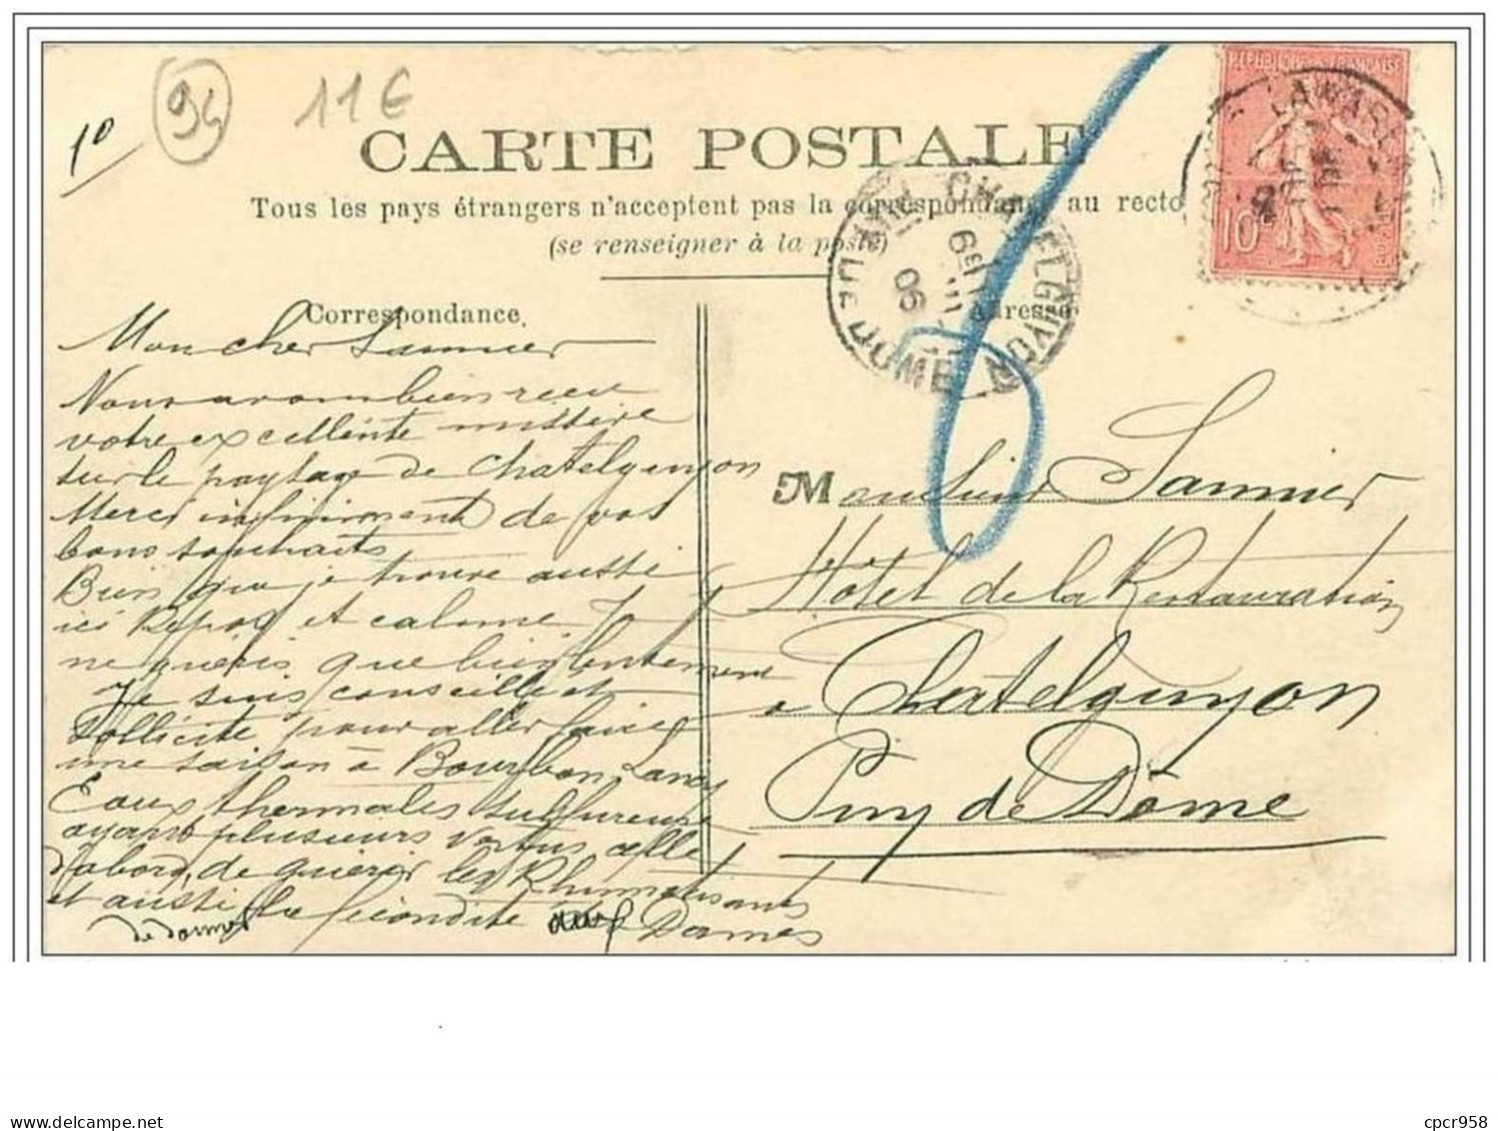 1º
94
11€
CARTE POSTALE
Tous les pays étrangers n'acceptent pas la correspondance au recto
(se renseigner à la poste)
REPUBLIQUE FRANÇAISE
10
CHATELGUYON
PUY DE DOME
6E
06
Correspondance
Adresse
Mon cher Sannier
Nous avons bien recu
votre excellente missive
sur le paysage de Chatelguyon
Merci infiniment de vos
bons souhaits
Bien que je trouve aussi
ici Repos et calme, Je
ne gueris que bien lentement
Je suis conseillé et
sollicité pour aller faire
une saison à Bourbon Lancy
Eaux thermales sulfureuses
ayant plusieurs vertus celle
d'abord, de guerir les Rhumatisants
et aussi la fécondité Dames
de donner aux
M onsieur Sannier
Hôtel de la Restauration
à Chatelguyon
Puy de Dôme
cpcr958